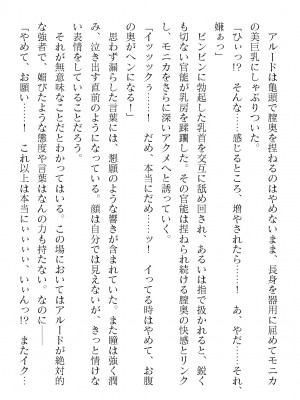 アルードは亀頭で膣奥を捏ねるのはやめないまま、長身を器用に屈めてモニカ
の美巨乳にしゃぶりついた。
「ひぃっ!?　そんな……！　感じるところ、増やされたら……！　あ、やだ……それ、
嫌ぁっ」
　ビンビンに勃起した乳首を交互に舐め回され、あるいは指で扱かれると、鋭く
も切ない官能が乳房を蹂躙した。その官能は捏ねられ続ける膣奥の快感とリンク
し、モニカをさらに深いアクメへと誘っていく。
「イッッックぅ……！　だめ、本当にだめ……ッ！　イってる時はやめて、お腹
の奥がヘンになる！」
　思わず漏らした言葉には、懇願のような響きが含まれていた。また瞳は強く潤
み、泣き出す直前のようになっている。顔は自分では見えないが、きっと情けな
い表情をしていることだろう。
　それが無意味なことだとわかってはいる。この場においてはアルードが絶対的
な強者で、媚びたような態度や言葉はなんの力も持たない。なのに――
「やめて、お願い……！　これ以上は本当にぃぃぃ、いぃんっ!?　またイク……